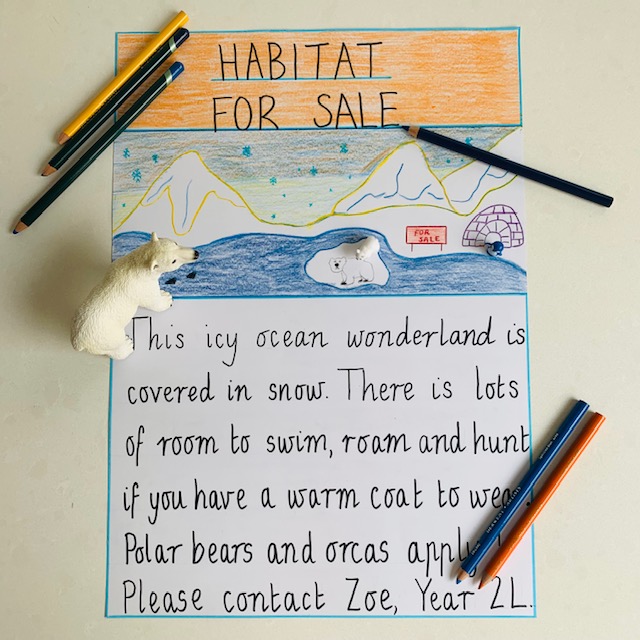 HABITAT
FOR SALE
FOR
SALE
This icy ocean wonderland is
covered in snow. There is lots
of room to swim, roam and hunt
if you have a warm coat to wear
Polar bears and orcas apply
Please contact Zoe, Year 2L.